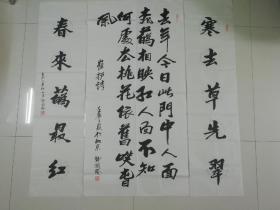 寒去草先翠
去年今日此門中人面
桃蘤相映红人面不知
何處去桃花依舊咲春
風
崔护詩
春來蘤最紅